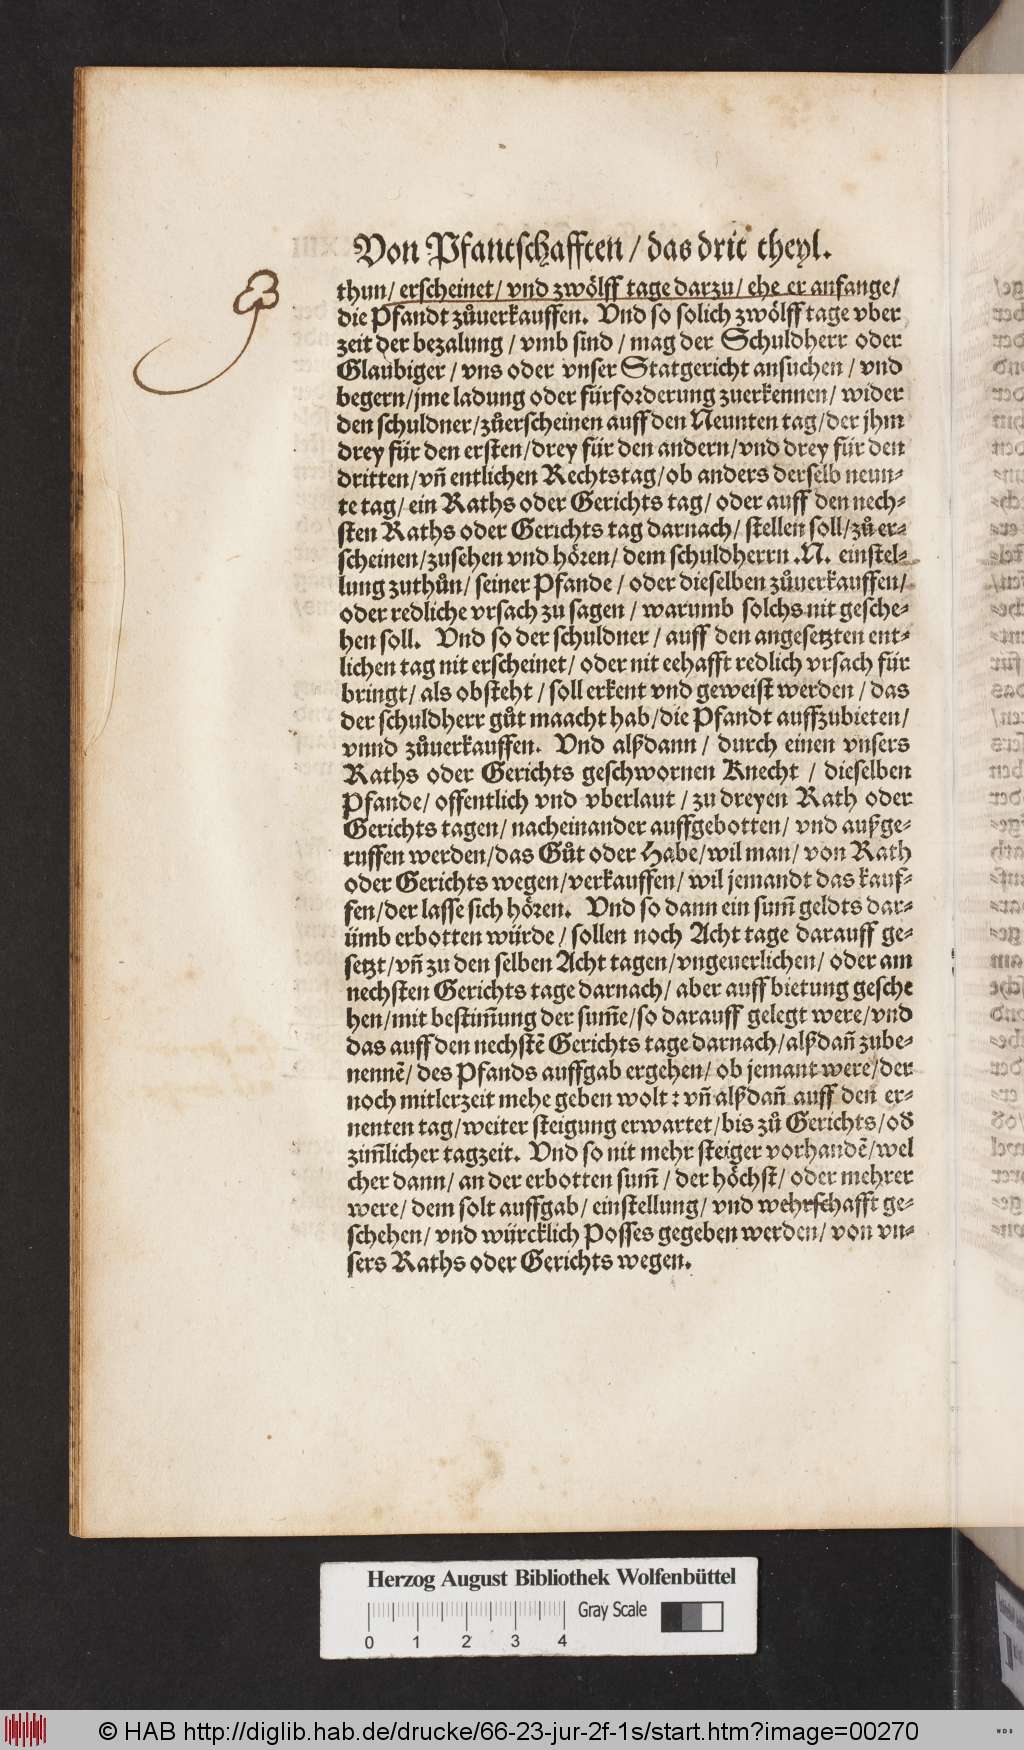 Von Pfantschafften / das drit theyl.
thun / erscheinet / vnd zwölff tage darzu / ehe er anfange /
die Pfandt zůuerkauffen. Vnd so solich zwölff tage vber
zeit der bezalung / vmb sind / mag der Schuldherr oder
Glaubiger / vns oder vnser Statgericht ansuchen / vnd
begern / jme ladung oder fürforderung zuerkennen / wider
den schuldner / zůerscheinen auff den Neunten tag / der jhm
drey für den ersten / drey für den andern / vnd drey für den
dritten / vñ entlichen Rechtstag / ob anders derselb neun-
te tag / ein Raths oder Gerichts tag / oder auff den nech-
sten Raths oder Gerichts tag darnach / stellen soll / zů er-
scheinen / zusehen vnd hören / dem schuldherrn .N. einstel-
lung zuthůn / seiner Pfande / oder dieselben zůuerkauffen /
oder redliche vrsach zu sagen / warumb solchs nit gesche-
hen soll. Vnd so der schuldner / auff den angesetzten ent-
lichen tag nit erscheinet / oder nit eehafft redlich vrsach für
bringt / als obsteht / soll erkent vnd geweist werden / das
der schuldherr gůt maacht hab / die Pfandt auffzubieten /
vnnd zůuerkauffen. Vnd alßdann / durch einen vnsers
Raths oder Gerichts geschwornen Knecht / dieselben
Pfande / offentlich vnd vberlaut / zu dreyen Rath oder
Gerichts tagen / nacheinander auffgebotten / vnd außge-
ruffen werden / das Gůt oder Habe / wil man / von Rath
oder Gerichts wegen / verkauffen / wil jemandt das kauf-
fen / der lasse sich hören. Vnd so dann ein sum̃ geldts dar-
ümb erbotten würde / sollen noch Acht tage darauff ge-
setzt / vñ zu den selben Acht tagen / vngeuerlichen / oder am
nechsten Gerichts tage darnach / aber auff bietung gesche
hen / mit bestim̃ung der sum̃e / so darauff gelegt were / vnd
das auff den nechstẽ Gerichts tage darnach / alßdañ zube-
nennẽ / des Pfands auffgab ergehen / ob jemant were / der
noch mitlerzeit mehe geben wolt : vñ alßdañ auff den er-
nenten tag / weiter steigung erwartet / bis zů Gerichts / od̃
zim̃licher tagzeit. Vnd so nit mehr steiger vorhandẽ / wel
cher dann / an der erbotten sum̃ / der höchst / oder mehrer
were / dem solt auffgab / einstellung / vnd wehrschafft ge-
schehen / vnd würcklich Posses gegeben werden / von vn-
sers Raths oder Gerichts wegen.
Herzog August Bibliothek Wolfenbüttel
Gray Scale
0 1 2 3 4
© HAB http://diglib.hab.de/drucke/66-23-jur-2f-1s/start.htm?image=00270